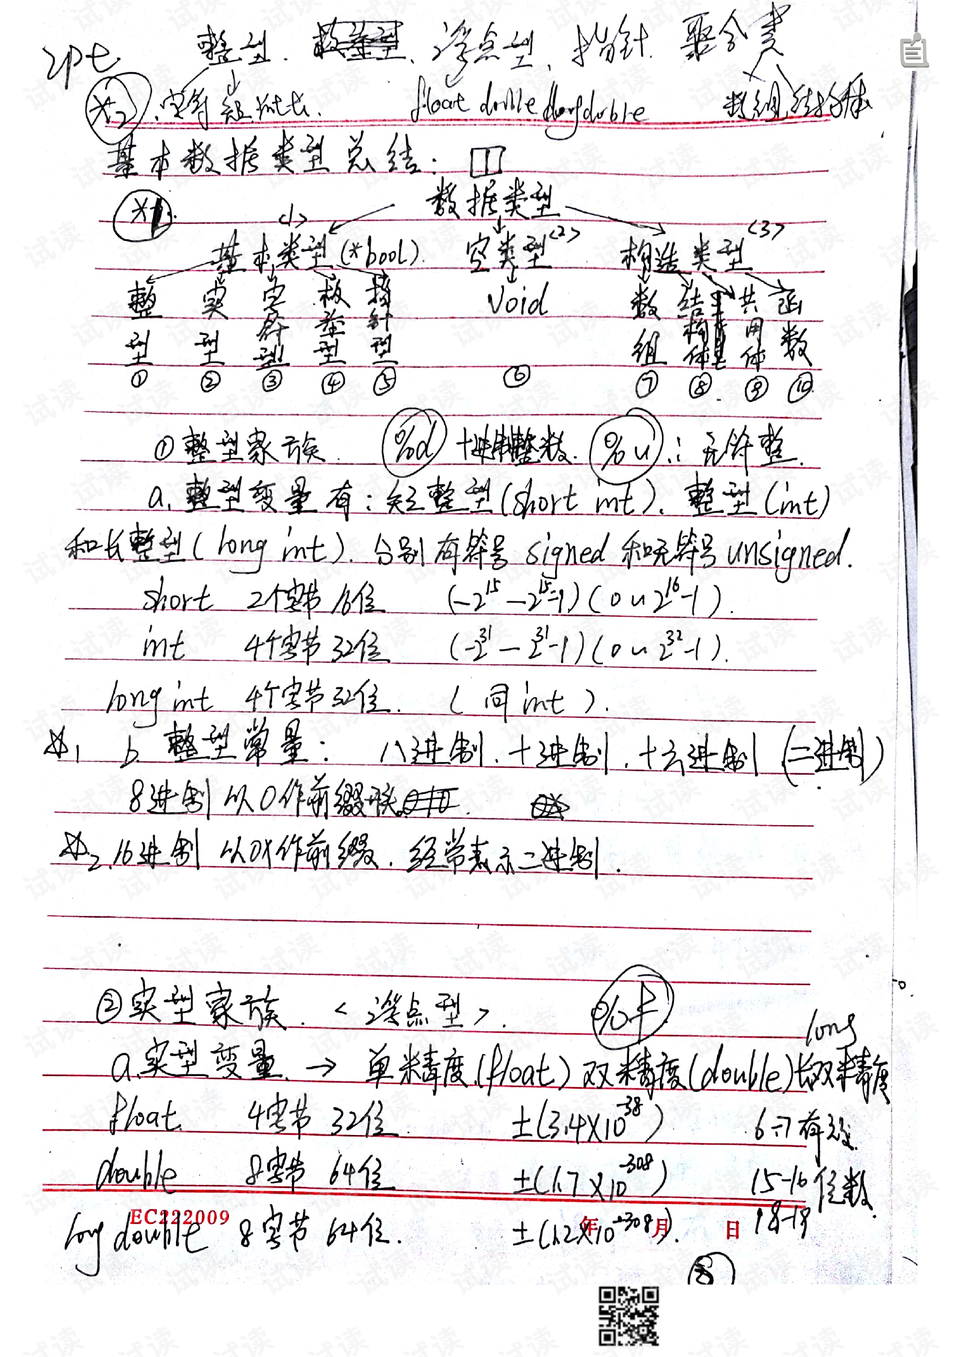 整型. 浮点型. 指针. 聚合类
字符 短 长. float double long double 数组 结构体
基本数据类型总结:
数据类型
<1> 基本类型(*bool). 空类型<2> 构造类型<3>
整型 实型 字符型 枚举型 指针型 void 数组 结构体 共用体 函数
① ② ③ ④ ⑤ ⑥ ⑦ ⑧ ⑨ ⑩
①整型家族. %d 十进制整数. %u : 无符整.
a. 整型变量有: 短整型(short int). 整型(int)
和长整型(long int). 分别有符号 signed 和无符号 unsigned.
short 2个字节 16位 (-2^15 — 2^15-1)(0 ~ 2^16-1).
int 4个字节 32位 (-2^31 — 2^31-1)(0 ~ 2^32-1).
long int 4个字节 32位. (同int).
1 b. 整型常量: 八进制. 十进制. 十六进制 (二进制)
8进制以0作前缀
2. 16进制 以0X作前缀. 经常表示二进制.
②实型家族. <浮点型>. %f
a. 实型变量. → 单精度(float) 双精度(double) long 长双精度
float 4字节 32位. ±(3.4X10^-38) 6-7有效
double 8字节 64位 ±(1.7X10^-308) 15-16位数.
long double 8字节 64位. ±(1.2X10^+308). 18-19
EC222009 年 月 日
8